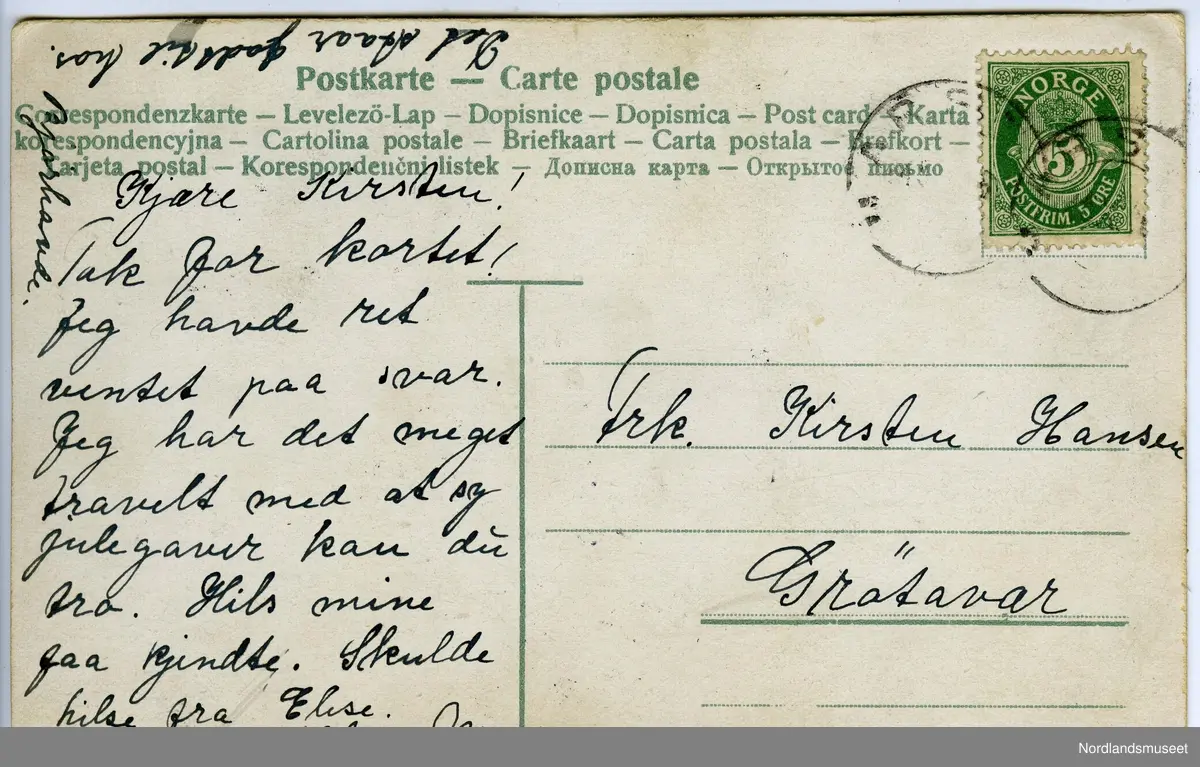 Det staar godt til hos
Bjørhavde.
Postkarte — Carte postale
Correspondenzkarte — Levelezö-Lap — Dopisnice — Dopisnica — Post card — Karta
korespondencyjna — Cartolina postale — Briefkaart — Carta postala — Brefkort —
Tarjeta postal — Korespondenční listek — Дописна карта — Открытое письмо
NORGE
5
POSTFRIM. 5 ØRE
Kjære Kirsten!
Tak for kortet!
Jeg havde ret
ventet paa svar.
Jeg har det meget
travelt med at sy
julegaver kan du
tro. Hils mine
faa kjendte. Skulde
hilse fra Elise.
Frk. Kirsten Hansen
Grötavar
Nordlandsmuseet